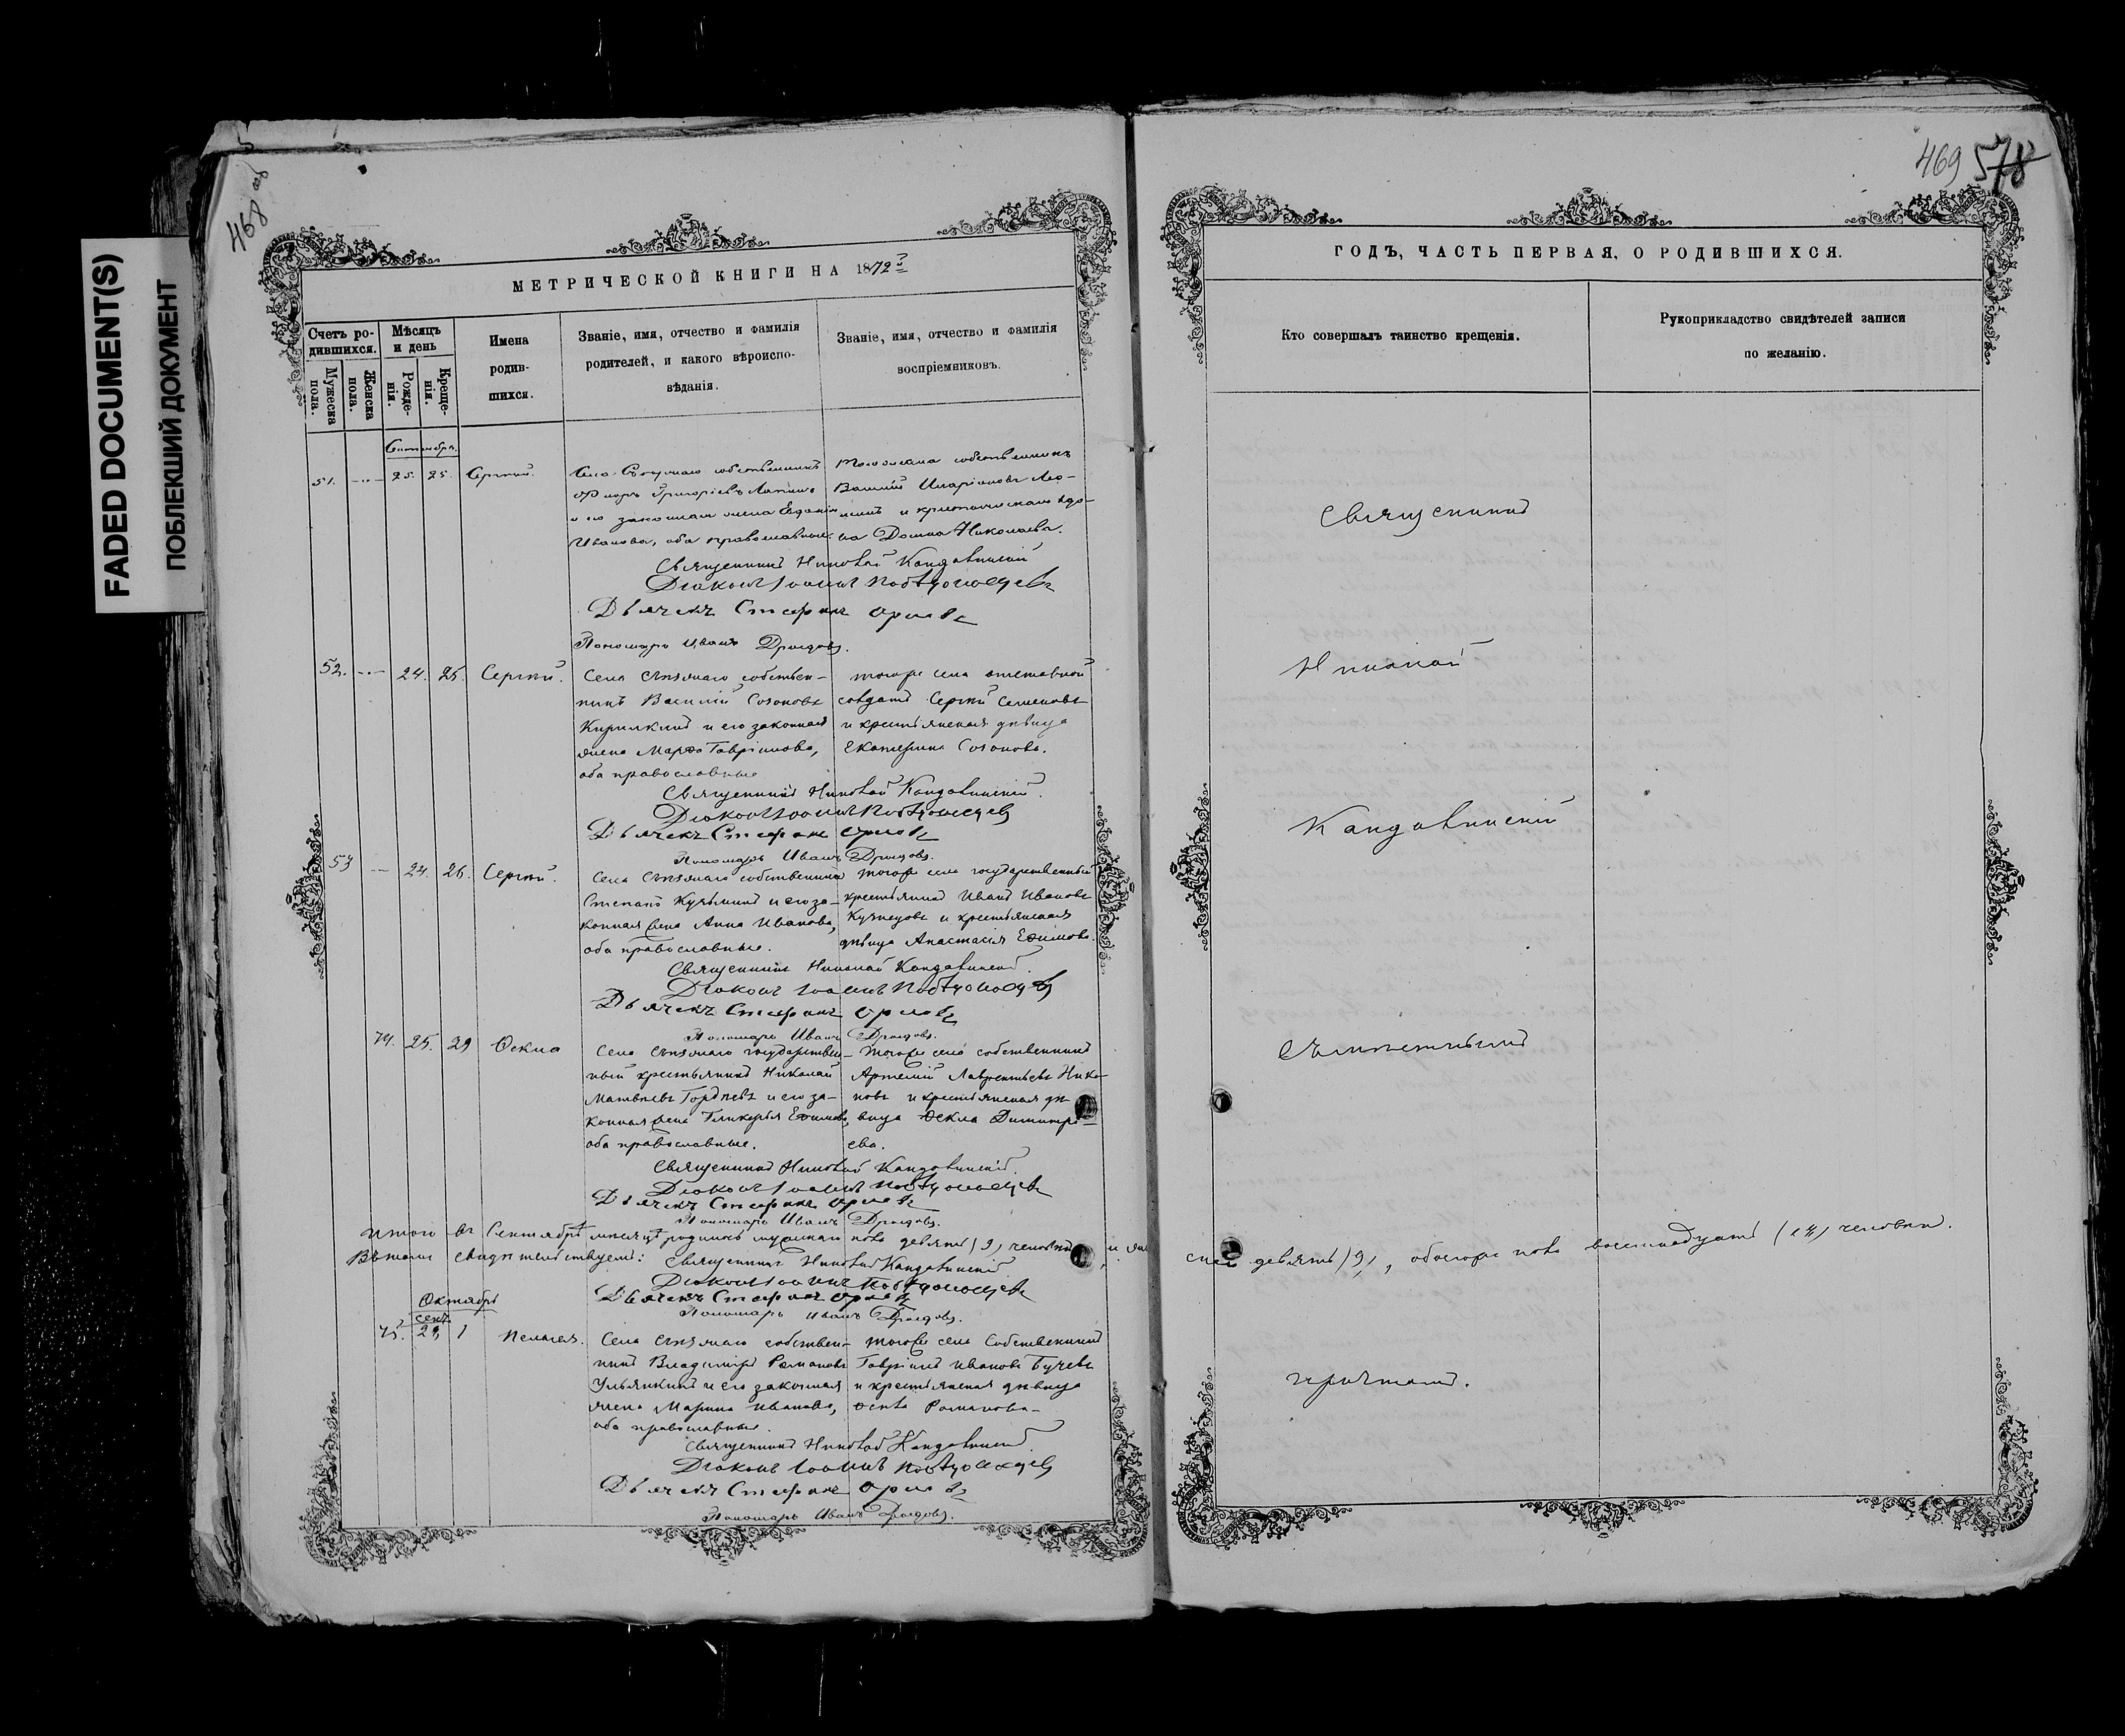 FADED DOCUMENT(S)
ПОБЛЕКШИЙ ДОКУМЕНТ
468 об
469 578
МЕТРИЧЕСКОЙ КНИГИ НА 1872
Счетъ ро-
дившихся.
Мужеска
пола.
Женска
пола.
Мѣсяцъ
и день
Рожде-
нія.
Креще-
нія.
Имена
родив-
шихся.
Званіе, имя, отчество и фамилія
родителей, и какого вѣроиспо-
вѣданія.
Званіе, имя, отчество и фамилія
воспріемниковъ.
Сентябрь.
51. 25. 25. Сергій.
Села собственникъ
Григорьевъ
и его законная жена
Иванова, оба православные.
собственникъ
Василій Иларіоновъ
и крестьянская вдо-
ва Домна Николаева.
Священникъ Николай Кандовинскій
Діаконъ Іоаннъ Победоносцевъ
Дьячекъ Стефанъ Орловъ
Пономарь Иванъ Дроздовъ.
52. 24. 25. Сергій.
Села собствен-
никъ Василій Созоновъ
и его законная
жена Марфа Гавріилова,
оба православные
тогоже села отставной
солдатъ Сергій Семеновъ
и крестьянская дѣвица
Екатерина Созонова.
Священникъ Николай Кандовинскій.
Діаконъ Іоаннъ Победоносцевъ
Дьячекъ Стефанъ Орловъ
Пономарь Иванъ Дроздовъ.
53 24. 26. Сергій.
Села собственникъ
Степанъ Кузьминъ и его за-
конная жена Анна Иванова,
оба православные.
тогоже села государственный
крестьянинъ Иванъ Ивановъ
Кузнецовъ и крестьянская
дѣвица Анастасія Ефимова.
Священникъ Николай Кандовинскій.
Діаконъ Іоаннъ Победоносцевъ
Дьячекъ Стефанъ Орловъ
Пономарь Иванъ Дроздовъ.
74. 25. 29 Ѳекла
Села государствен-
ный крестьянинъ Николай
Матвѣевъ Гордѣевъ и его за-
конная жена Гликерія Ефимова,
оба православные.
тогоже села собственникъ
Артемій Лаврентьевъ Нико-
новъ и крестьянская дѣ-
вица Ѳекла Димитрі-
ева.
Священникъ Николай Кандовинскій.
Діаконъ Іоаннъ Победоносцевъ
Дьячекъ Стефанъ Орловъ
Пономарь Иванъ Дроздовъ.
Итого въ Сентябрѣ мѣсяцѣ родилось мужскаго пола девять (9) человѣкъ, и жен
скаго девять (9), обоего пола восемнадцать (18) человѣкъ.
Вѣтомъ свидѣтельствуемъ: Священникъ Николай Кандовинскій
Діаконъ Іоаннъ Победоносцевъ
Дьячекъ Стефанъ Орловъ
Пономарь Иванъ Дроздовъ.
Октябрь
сент.
75. 29, 1 Пелагея.
Села собствен-
никъ Владиміръ Романовъ
Ульянкинъ и его законная
жена Марина Иванова,
оба православные.
тогоже села Собственникъ
Гавріилъ Ивановъ
и крестьянская дѣвица
Романова
Священникъ Николай Кандовинскій.
Діаконъ Іоаннъ Победоносцевъ
Дьячекъ Стефанъ Орловъ
Пономарь Иванъ Дроздовъ.
ГОДЪ, ЧАСТЬ ПЕРВАЯ, О РОДИВШИХСЯ.
Кто совершалъ таинство крещенія.
Рукоприкладство свидѣтелей записи
по желанію.
Священникъ
Николай
Кандовинскій
причтомъ.